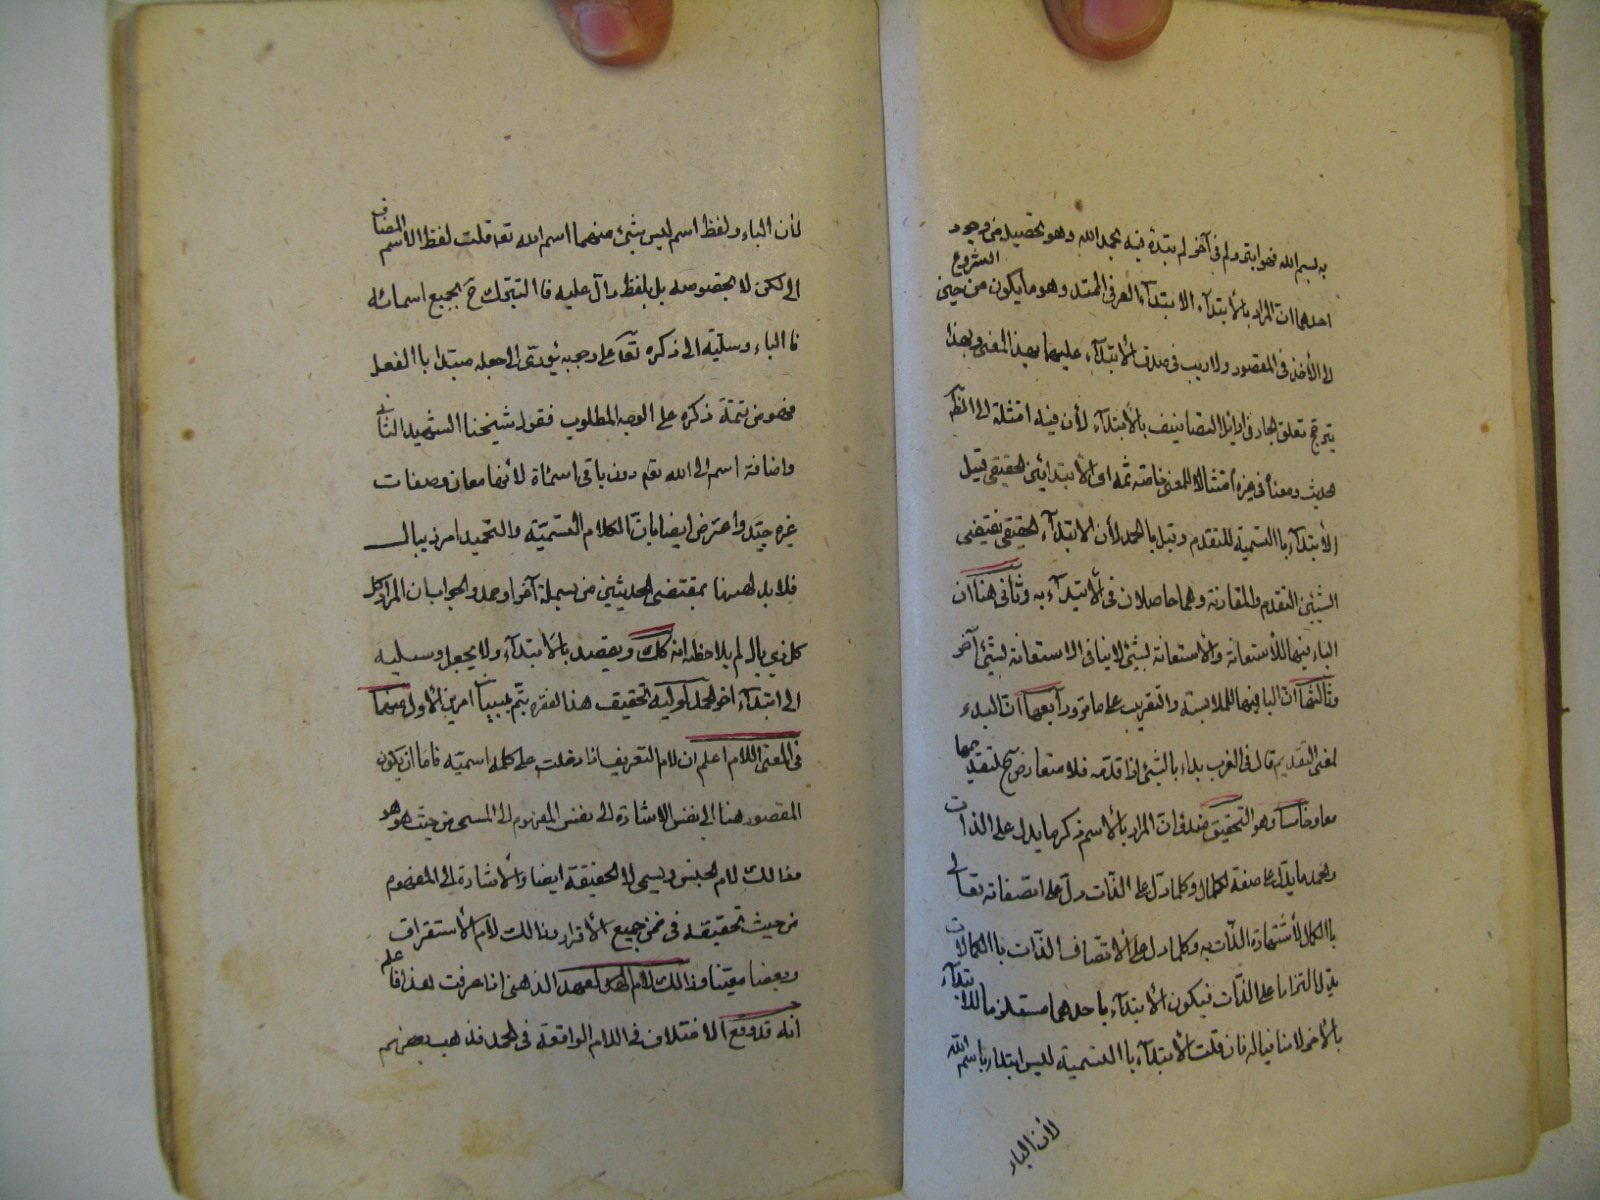 به بسم الله فهو ابتر ولم في آخر لم يبتدء فيه بحمد الله وهو بحصيل من وجوه
احدها ان المراد بالأبتدآء الابتدآء العرفي الممتد وهو ما يكون من حين الشروع
الى الأخذ في المقصود ولا ريب في صدق الأبتدآء عليهما بهذا المعنى وبهذا
يترجح تعلق الجار في اوايل التصانيف بالأبتدآء لأن فيه امتثلة الى
الحديث ومعنا في غيره امتثالا للمعنى خاصة ثم اول الأبتدائين الحقيقي قيل
الأبتدآء باالتسمية للتقدم وقيل بالحمد لأن الابتدآء الحقيقي يقتضي
الشيئين التقدم والمقارنة وهما حاصلان في الأبتدآء به وثانى هنا ان
الباء فيهما للأستعانة والأستعانة بشئ لا ينافي الاستعانة بشئ آخر
وثالثها ان الباء فيهما للملابسة والتقريب على ما مر ورابعها ان البدء
لمعنى التقديم قال في المغرب بداء بالشئ اذا قدمه فلا متعارض ح لتقديمهما
معا وخامسا وهو التحقيق ان المراد بالأسم ذكر ما يدل على الذات
وبحمد ما يدل على صفة الكمال وكلما دل على الذات دل على اتصفاته تعالى
باالكمال لأشتهارة الذات به وكلما دل على اتصاف الذات باالكمالات
يدل التزاما على الذات فيكون الأبتدآء باحدهما مستلزما للابتدآء
بالأخر لا منافيا له فان قلت الأبتدآء باالتسمية ليس ابتداء باسم الله
لأن الباء
لأن الباء ولفظ اسم ليس شئ منهما اسم الله تعا قلت لفظ الأسم المضاف
الى لكن لا بخصوصه بل بلفظ دآل عليه فا التبرك ح بجميع اسمائه
فا الباء وسيلة الى ذكره تعا على وجه يؤدى الى جعله مبتدا باالفعل
فهو من تتمة ذكره على الوجه المطلوب فقول شيخنا الشهيد الثاني
واضافة اسم الى الله تعم دون باقى اسماءة لأنها معان وصفات
غيره جيد واعترض ايضا بان الكلام التسمية والتحميد امر ذيبال
فلا بد لهما بمقتضى الحديثين من بسملة آخرا وحمد والجواب ان المراد كل
كل ذي بال لم يلاحظ انه كك ويقصد بالأبتدآء ولا يجعل وسيلة
الى ابتدآء اخر تحقيق هذا الفقره يتم ببيان امرين الأول منهما
في المعنى اللام اعلم ان لام التعريف اذا دخلت على كلمة اسمية فاما ان يكون
المقصود هنا الى نفس الاشارة الى نفس المفهوم الى المسمى من حيث هو هو
فذالك لام الجنس ويسمى لا الحقيقة ايضا والأشارة الى المفهوم
من حيث تحقيقه في ضمن جميع الأفراد فذالك لام الأستغراق
وبعضا معينا وذالك لام العهد الذهنى اذا عرفت هذا فاعلم
انه قد وقع الاختلاف في اللام الواقعة في الحمد فذهب بعضهم